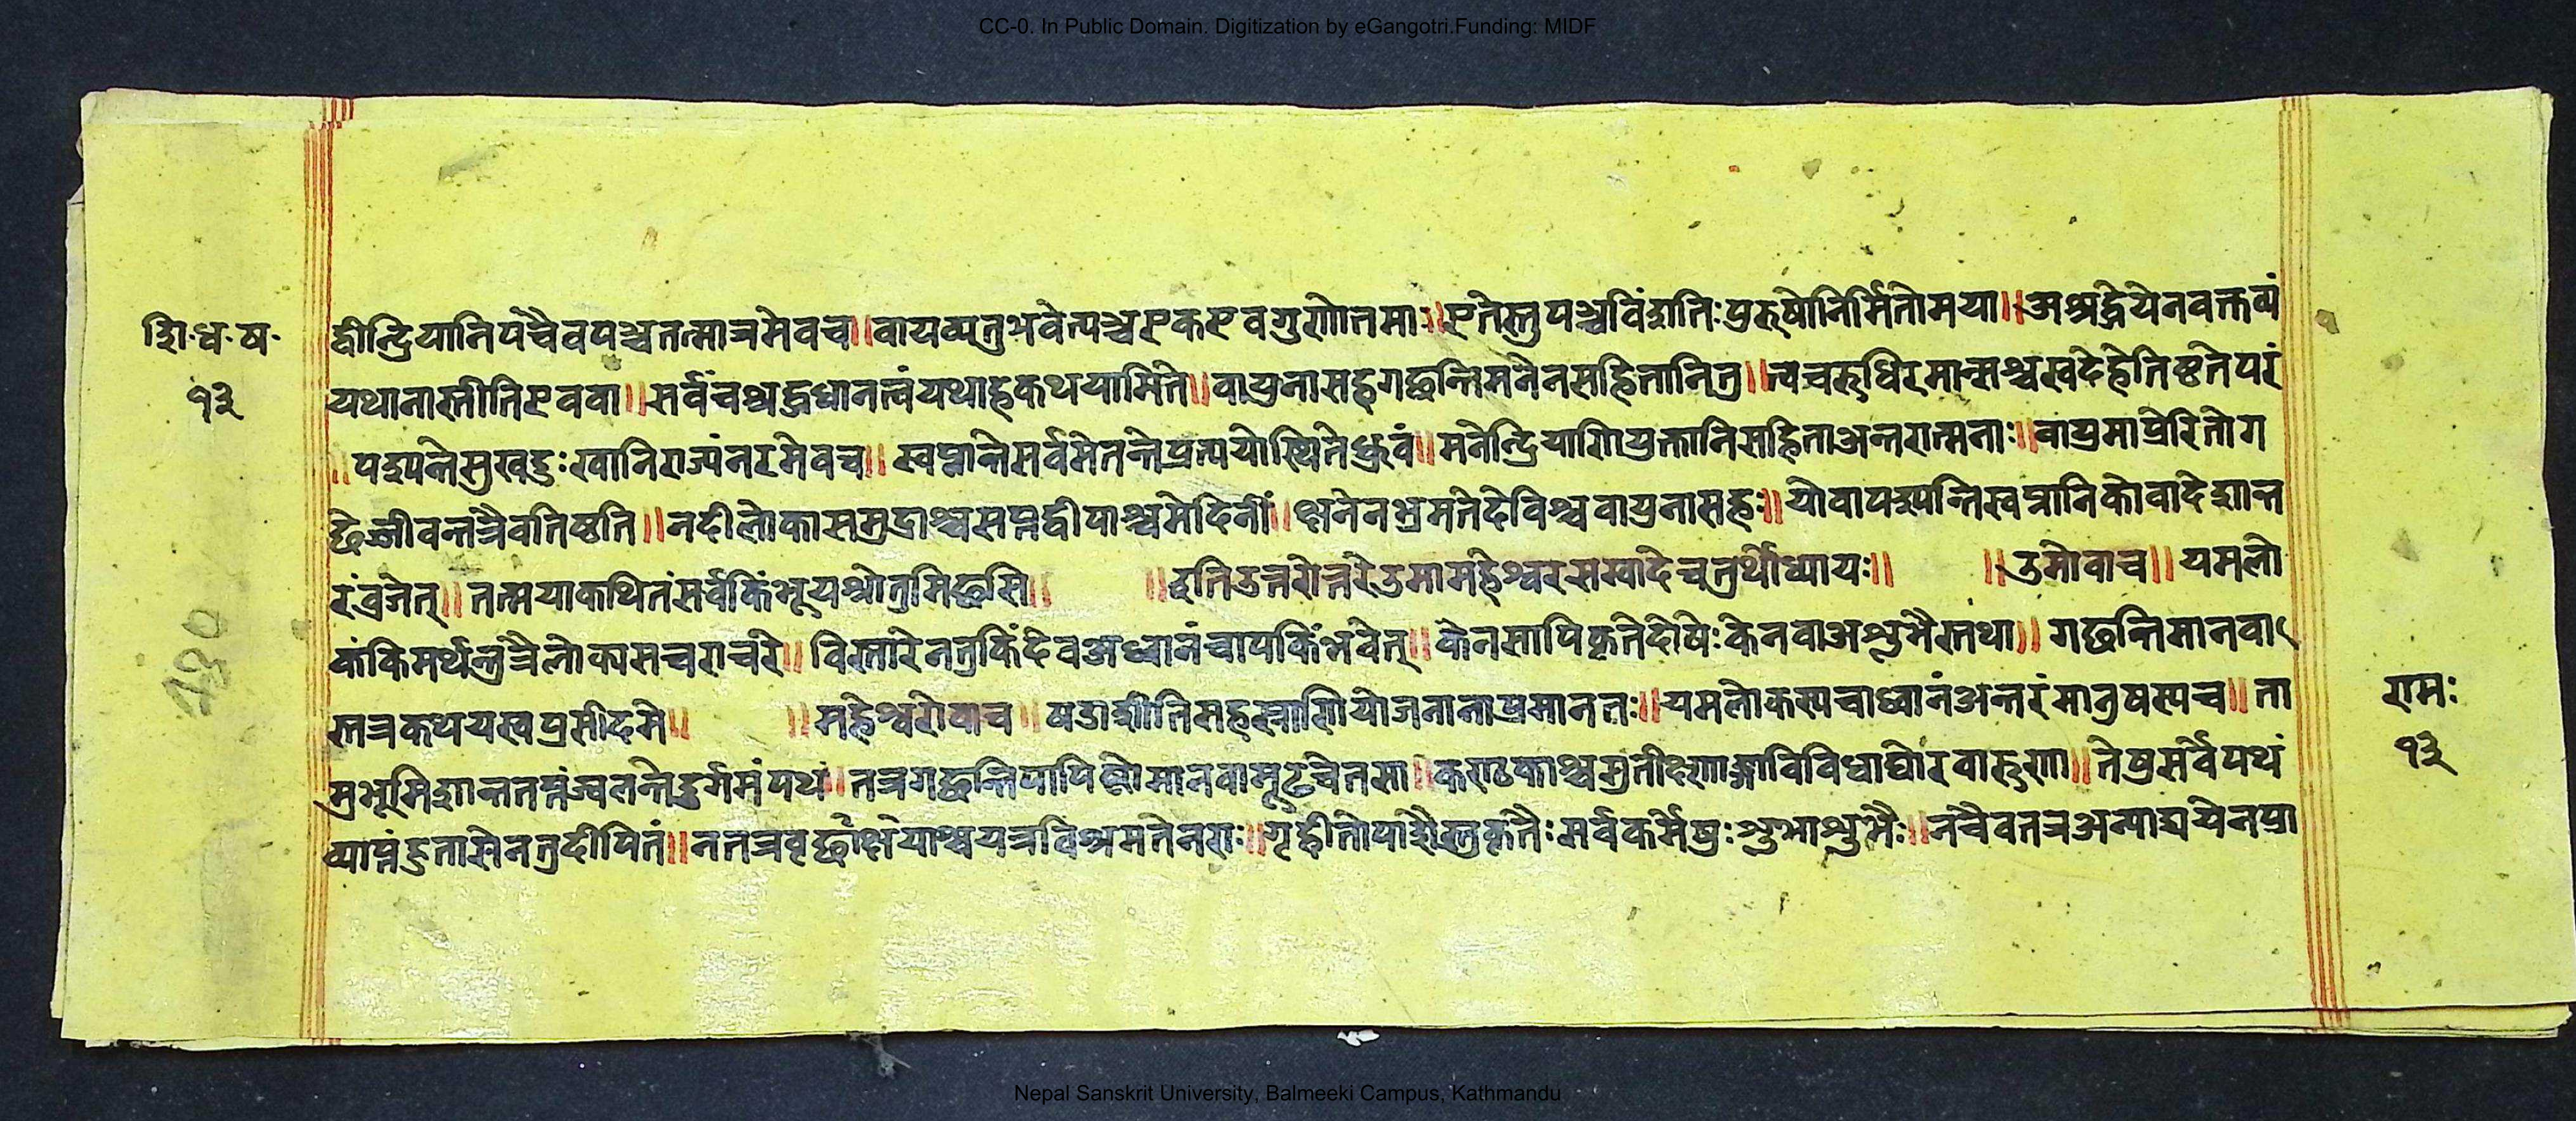 CC-0. In Public Domain. Digitization by eGangotri.Funding: MIDF
शि·ध·ष·
१३
द्वीन्द्रियानिपंचैवपञ्चतत्मात्रमेवच॥वायव्यतुभवेत्पञ्चएकएवगुणोत्तमाः॥एतेस्तुपञ्चविंशतिःपुरुषोनिर्मितोमया॥अश्रद्धेयेनवक्तव्यं
यथानास्तीतिएववा॥सर्वंचश्रद्दधानत्वंयथाहकथयामिते॥वायुनासहगछन्तिमनेनसहितानितु॥त्वचरुधिरमान्सश्चस्वदेहेतिष्टतेपरं
॥पश्यन्तेसुखदुःखानिराज्यंनरमेवच॥स्वप्नान्तेसर्वमेतन्तेप्रत्ययोस्थितेध्रुवं॥मनेन्द्रियाणियुक्तानिसहिताअन्तरात्मनाः॥वायुमाप्रेरितोग
छिजीवन्तत्रैवतिष्ठति॥नदीलोकासमुद्राश्चसप्तद्वीपाश्चमेदिनीं॥क्षनेनभ्रमतेदेविश्चवायुनासहः॥योवापश्यन्तिस्वप्नानिकोवादेशान्त
रंव्रजेत्॥तत्मयाकथितंसर्वंकिंभूयश्रोतुमिछसि॥ ॥इतिउत्तरोत्तरेउमामहेश्वरसम्वादेचतुर्थोध्यायः॥ ॥उमोवाच॥यमलो
कंकिमर्थन्तुत्रैलोक्यसचराचरे॥विस्तारेनतुकिंदेवअध्वानंचापकिंभवेत्॥केनसापिकृतेदोषेःकेनवाअशुभैस्तथा॥गछन्तिमानवा
स्तत्रकथयस्वप्रसीदमे॥ ॥महेश्वरोवाच॥षडाशीतिसहस्राणियोजनानाप्रमानतः॥यमलोकस्यचाध्वानंअन्तरंमानुषस्यच॥ता
म्रभूमिशान्ततप्तंज्वलन्तेदुर्गमंपथं॥तत्रगछन्तिपापिष्ठोमानवामूढचेतसा॥कण्टकाश्चसुतीक्ष्णाङ्गाविविधाघोरवारुणा॥तेषुसर्वेपथं
व्याप्तंहुतासेनतुदीपितं॥नतत्रवृछोक्षयाश्चयत्रविश्रमतेनराः॥गृह्वीतोपाशैस्तुकृतैःसर्वकर्मेषुःशुभाशुभैः॥नचैवतत्रअन्याद्ययेनप्रा
रामः
१३
Nepal Sanskrit University, Balmeeki Campus, Kathmandu